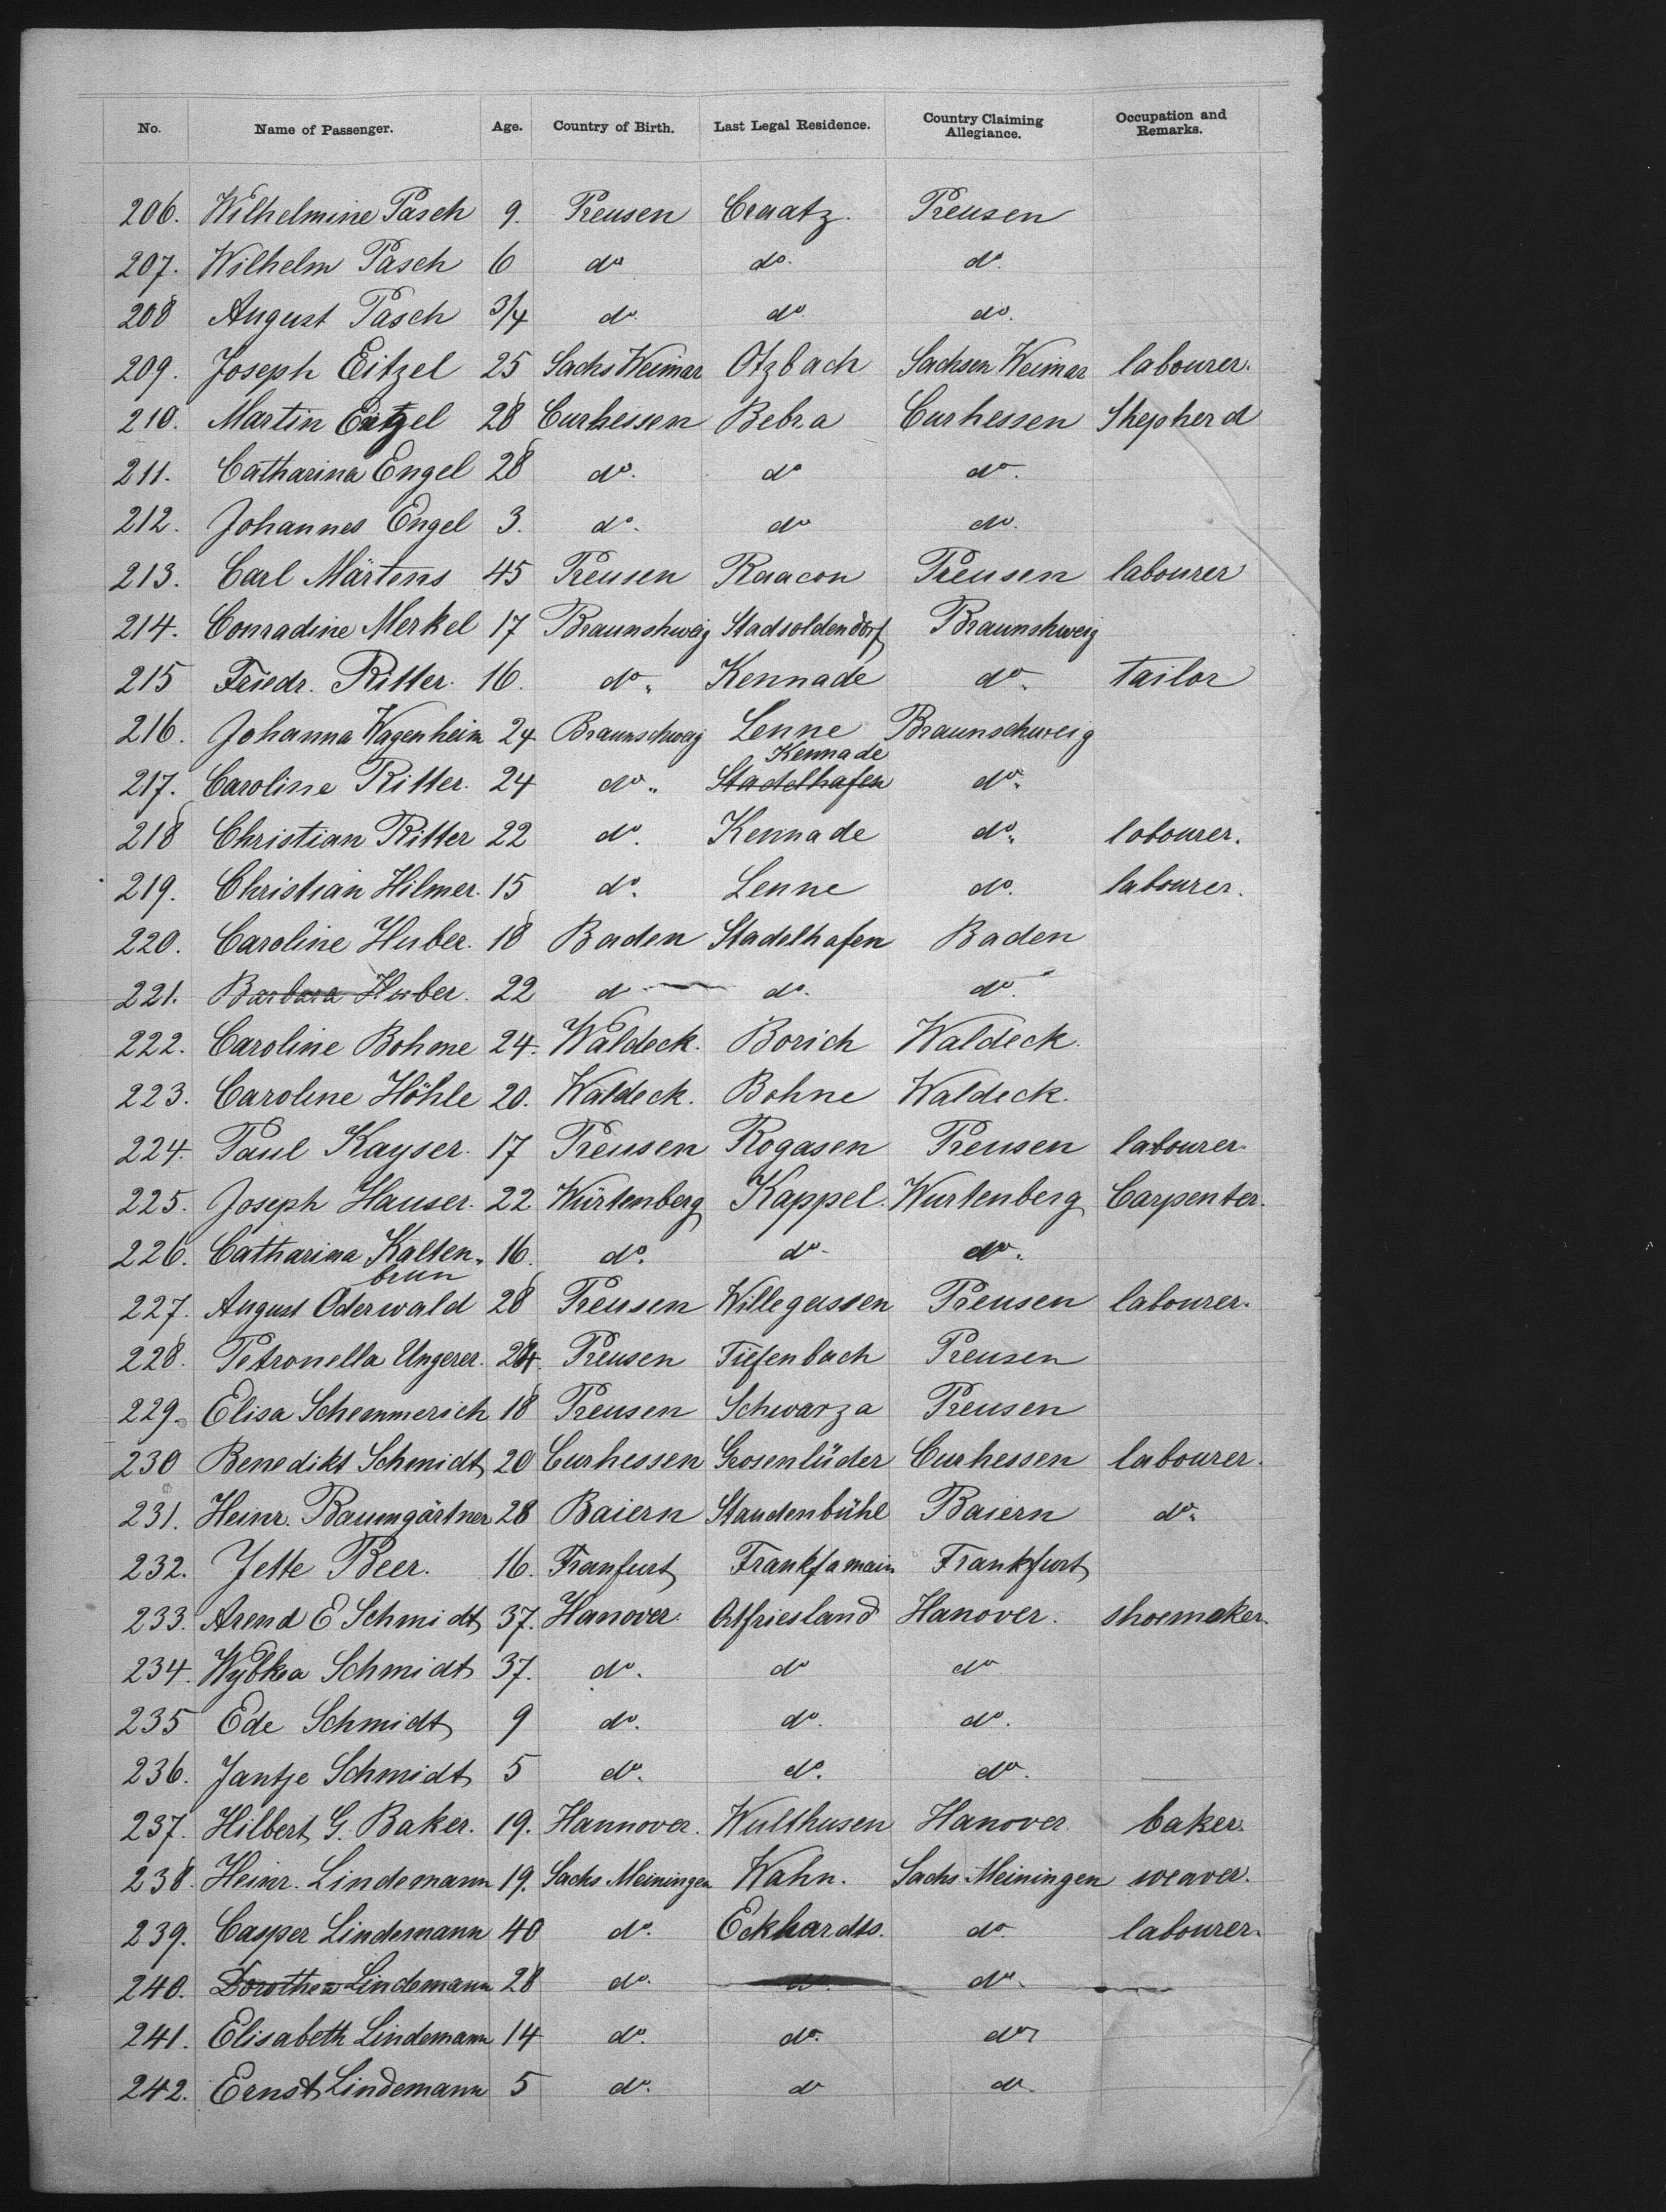 No. Name of Passenger. Age. Country of Birth. Last Legal Residence. Country Claiming Allegiance. Occupation and Remarks.
206. Wilhelmine Pasch 9. Preusen Craatz. Preusen
207. Wilhelm Pasch 6 do do. do.
208 August Pasch 3/4 do. do do.
209. Joseph Eitzel 25 Sachs Weimar Otzbach Sachsen Weimar labourer.
210. Martin 28 Curhessen Bebra Curhessen Shepherd
211. Catharina Engel 28 do. do do.
212. Johannes Engel 3. do. do do.
213. Carl Märtens 45 Preusen Raacon Preusen labourer
214. Conradine Merkel 17 Braunshweig Stadsoldendorf Braunshweig
215 Friedr. Ritter. 16. do " Kennade do " tailor
216. Johanna Wagenheim 24 Braunschweig Lenne Braunschweig
217. Caroline Ritter. 24 do " Stadelhafen Kennade do "
218 Christian Ritter 22 do. Kennade do " lobourer.
219. Christian Hilmer. 15 do. Lenne do. labourer.
220. Caroline Huber. 18 Baden Stadelhafen Baden
221. Barbara Huber. 22 d do. do.
222. Caroline Bohme 24. Waldeck. Borich Waldeck.
223. Caroline Höhle 20. Waldeck. Bohne Waldeck.
224. Paul Kayser. 17 Preusen Rogasen Preusen labourer.
225. Joseph Hauser. 22 Würtenberg Kappel. Wurtenberg Carpenter.
226. Catharina Kalten- 16. do. do- do.
brun
227. August Oderwald 28 Preusen Willegassen Preusen labourer.
228. Petronella Ungerer. 24. Preusen Tiefenbach Preusen
229. Elisa Schemmerich 18 Preusen Schwarza Preusen
230 Benedikt Schmidt 20 Curhessen Grosenlüder Curhessen labourer.
231. Heinr. Baumgärtner 28 Baiern Standenbühl Baiern do "
232. Jette Beer. 16. Franfurt Frankf a main Frankfurt
233. Arend E Schmidt 37. Hanover. Ostfriesland Hanover. shoemaker.
234. Wybka Schmidt 37. do. do do
235 Ede Schmidt 9 do. do. do.
236. Jantje Schmidt 5 do. do. do.
237. Hilbert G. Baker. 19. Hannover. Wulthusen Hanover. baker.
238. Heinr. Lindemann 19. Sachs. Meiningen Wahn. Sachs. Meiningen weaver.
239. Casper Lindemann 40 do. Eckhardts. do. labourer.
240. Dorothea Lindemann 28 do. do. do.
241. Elisabeth Lindemann 14 do. do. do.
242. Ernst Lindemann 5 do. do do.